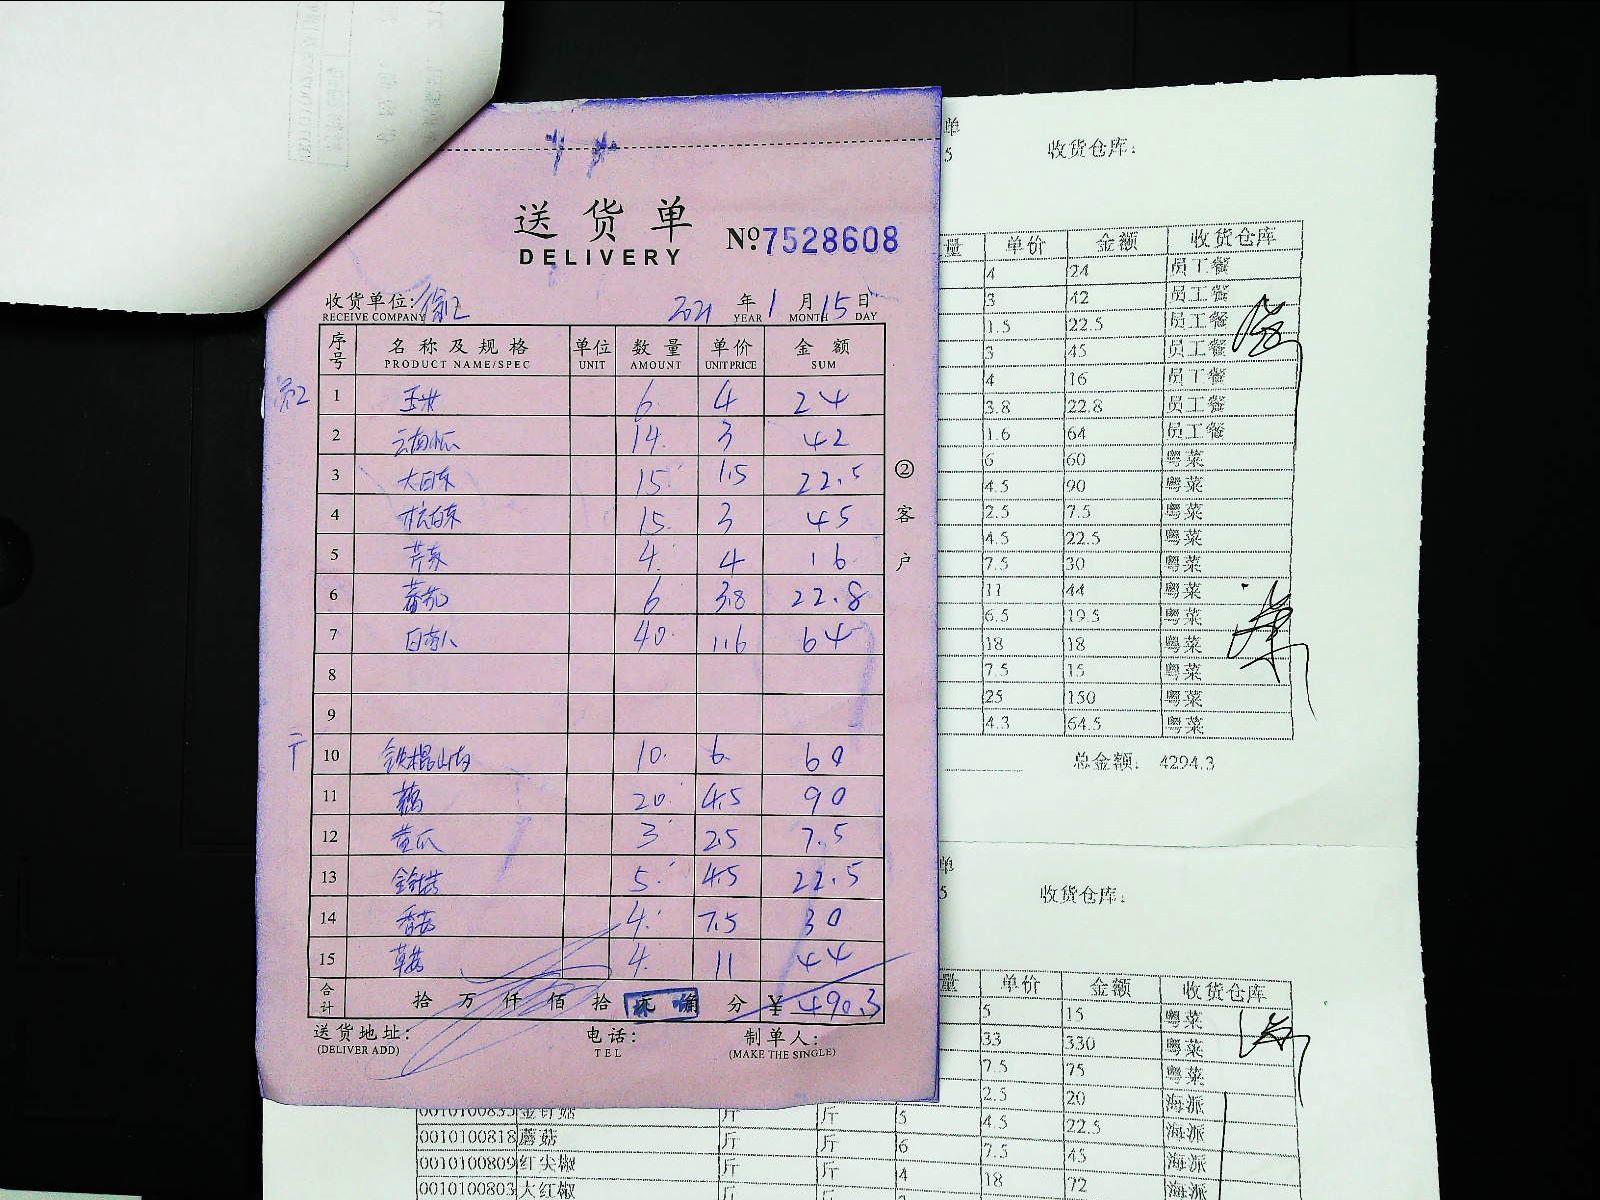 送货单
DELIVERY
№7528608
收货单位:
RECEIVE COMPANY
2021 年 1 月 15 日
YEAR MONTH DAY
序号 名称及规格 单位 数量 单价 金额
PRODUCT NAME/SPEC UNIT AMOUNT UNIT PRICE SUM
1 6 4 24
2 14 3 42
3 大白菜 15 1.5 22.5
4 15 3 45
5 芹菜 4 4 16
6 蕃茄 6 3.8 22.8
7 40 1.6 64
8
9
10 铁棍山药 10 6 60
11 藕 20 4.5 90
12 黄瓜 3 2.5 7.5
13 5 4.5 22.5
14 香菇 4 7.5 30
15 草菇 4 11 44
合计 拾 万 仟 佰 拾 元 角 分 ¥ 490.3
送货地址: 电话: 制单人:
(DELIVER ADD) TEL (MAKE THE SINGLE)
②客户
单
5 收货仓库:
量 单价 金额 收货仓库
4 24 员工餐
3 42 员工餐
1.5 22.5 员工餐
3 45 员工餐
4 16 员工餐
3.8 22.8 员工餐
1.6 64 员工餐
6 60 粤菜
4.5 90 粤菜
2.5 7.5 粤菜
4.5 22.5 粤菜
7.5 30 粤菜
11 44 粤菜
6.5 19.5 粤菜
18 18 粤菜
7.5 15 粤菜
25 150 粤菜
4.3 64.5 粤菜
总金额: 4294.3
单
5 收货仓库:
量 单价 金额 收货仓库
5 15 粤菜
33 330 粤菜
7.5 75 粤菜
2.5 20 海派
0010100835 金针菇 斤 斤 5 4.5 22.5 海派
0010100818 蘑菇 斤 斤 6 7.5 45 海派
0010100809 红尖椒 斤 斤 4 18 72 海派
0010100803 大红椒 斤 斤